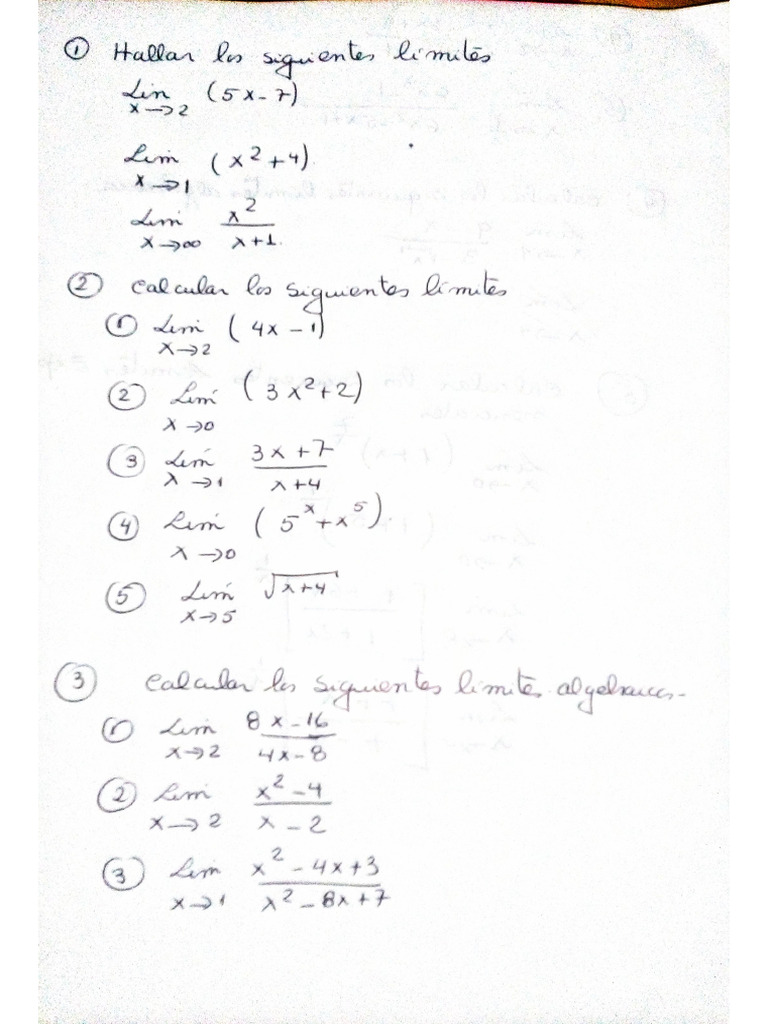 ① Hallar los siguientes limites
Lim x→2 (5x-7)
Lim x→1 (x²+4).
Lim x→∞ x²/x+1.
② calcular los siguientes limites
① Lim x→2 (4x-1)
② Lim x→0 (3x²+2)
③ Lim x→1 3x+7/x+4
④ Lim x→0 (5ˣ+x⁵)
⑤ Lim x→5 √x+4
③ calcular los siguientes limites algebraicos-
① Lim x→2 8x-16/4x-8
② Lim x→2 x²-4/x-2
③ Lim x→1 x²-4x+3/x²-8x+7